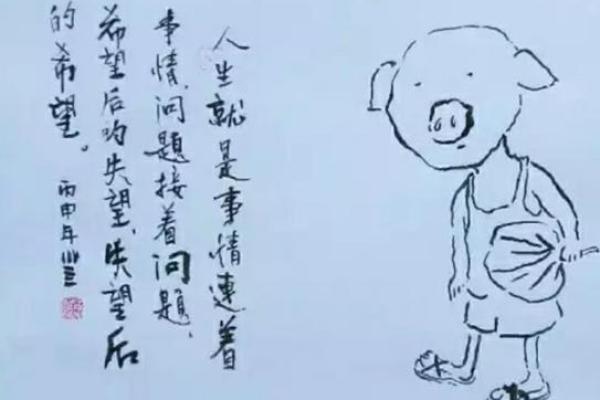 人生就是事情連着
事情,问题接着问题,
希望后的失望,失望后
的希望。
丙申年